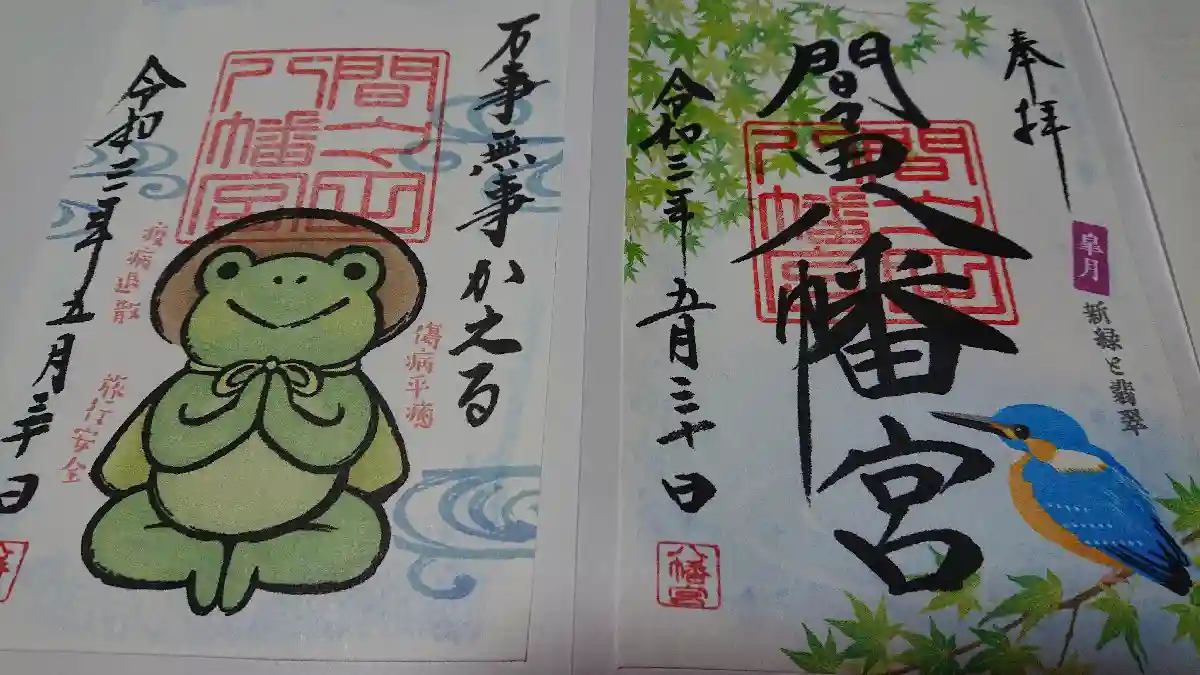 奉拝
皐月
新緑と翡翠
間々田八幡宮
令和三年五月三十日
八幡宮
万事無事かえる
傷病平癒
疫病退散
旅行安全
令和三年五月三十日